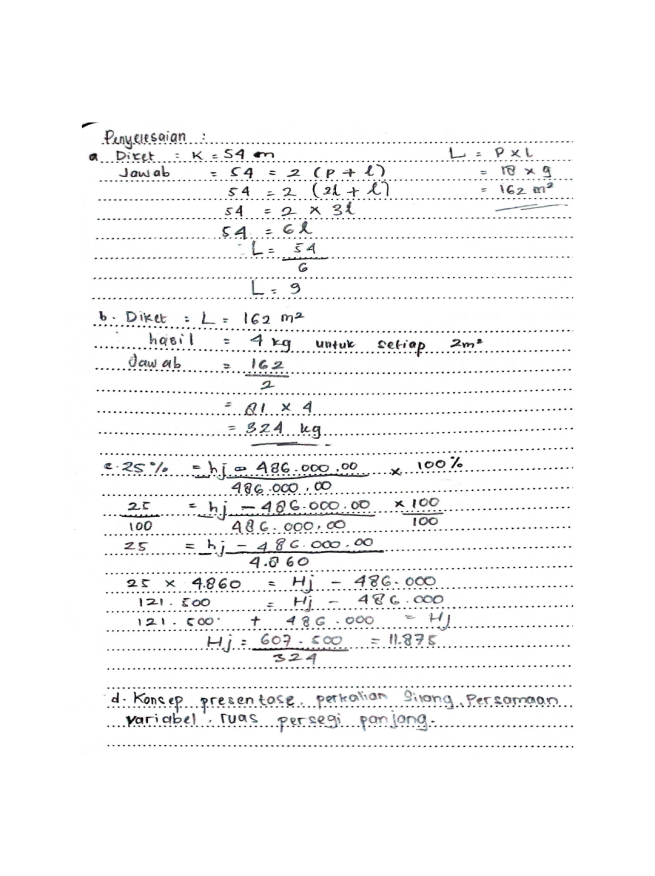 Penyelesaian :
a Diket : K = 54 m L = P x l
Jawab = 54 = 2 (p + l) = 18 x 9
54 = 2 (2l + l) = 162 m²
54 = 2 x 3l
54 = 6l
L = 54
6
L = 9
b. Diket : L = 162 m²
hasil = 4 kg untuk setiap 2m²
Jawab = 162
2
= 81 x 4
= 324 kg
c. 25% = hj - 486.000,00 x 100%
486.000,00
25 = hj - 486.000.00 x 100
100 486.000,00 100
25 = hj - 486.000.00
4.860
25 x 4.860 = Hj - 486.000
121.500 = Hj - 486.000
121.500 + 486.000 = Hj
Hj = 607.500 = 11.875
324
d. Konsep presentase, perkalian Silang, Persamaan
variabel, ruas persegi panjang.